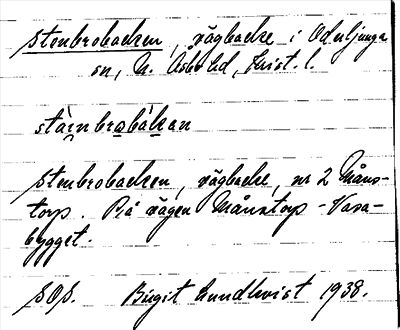 Stenbrobacken, vägbacke i Oderljunga
sn, N. Åsbo hd, Krist. l.
stàinbrobàkan
Stenbrobacken, vägbacke, nr 2 Måns-
torp. På vägen Månstorp - Vasa-
bygget.
SOS. Birgit Lundkvist 1938.